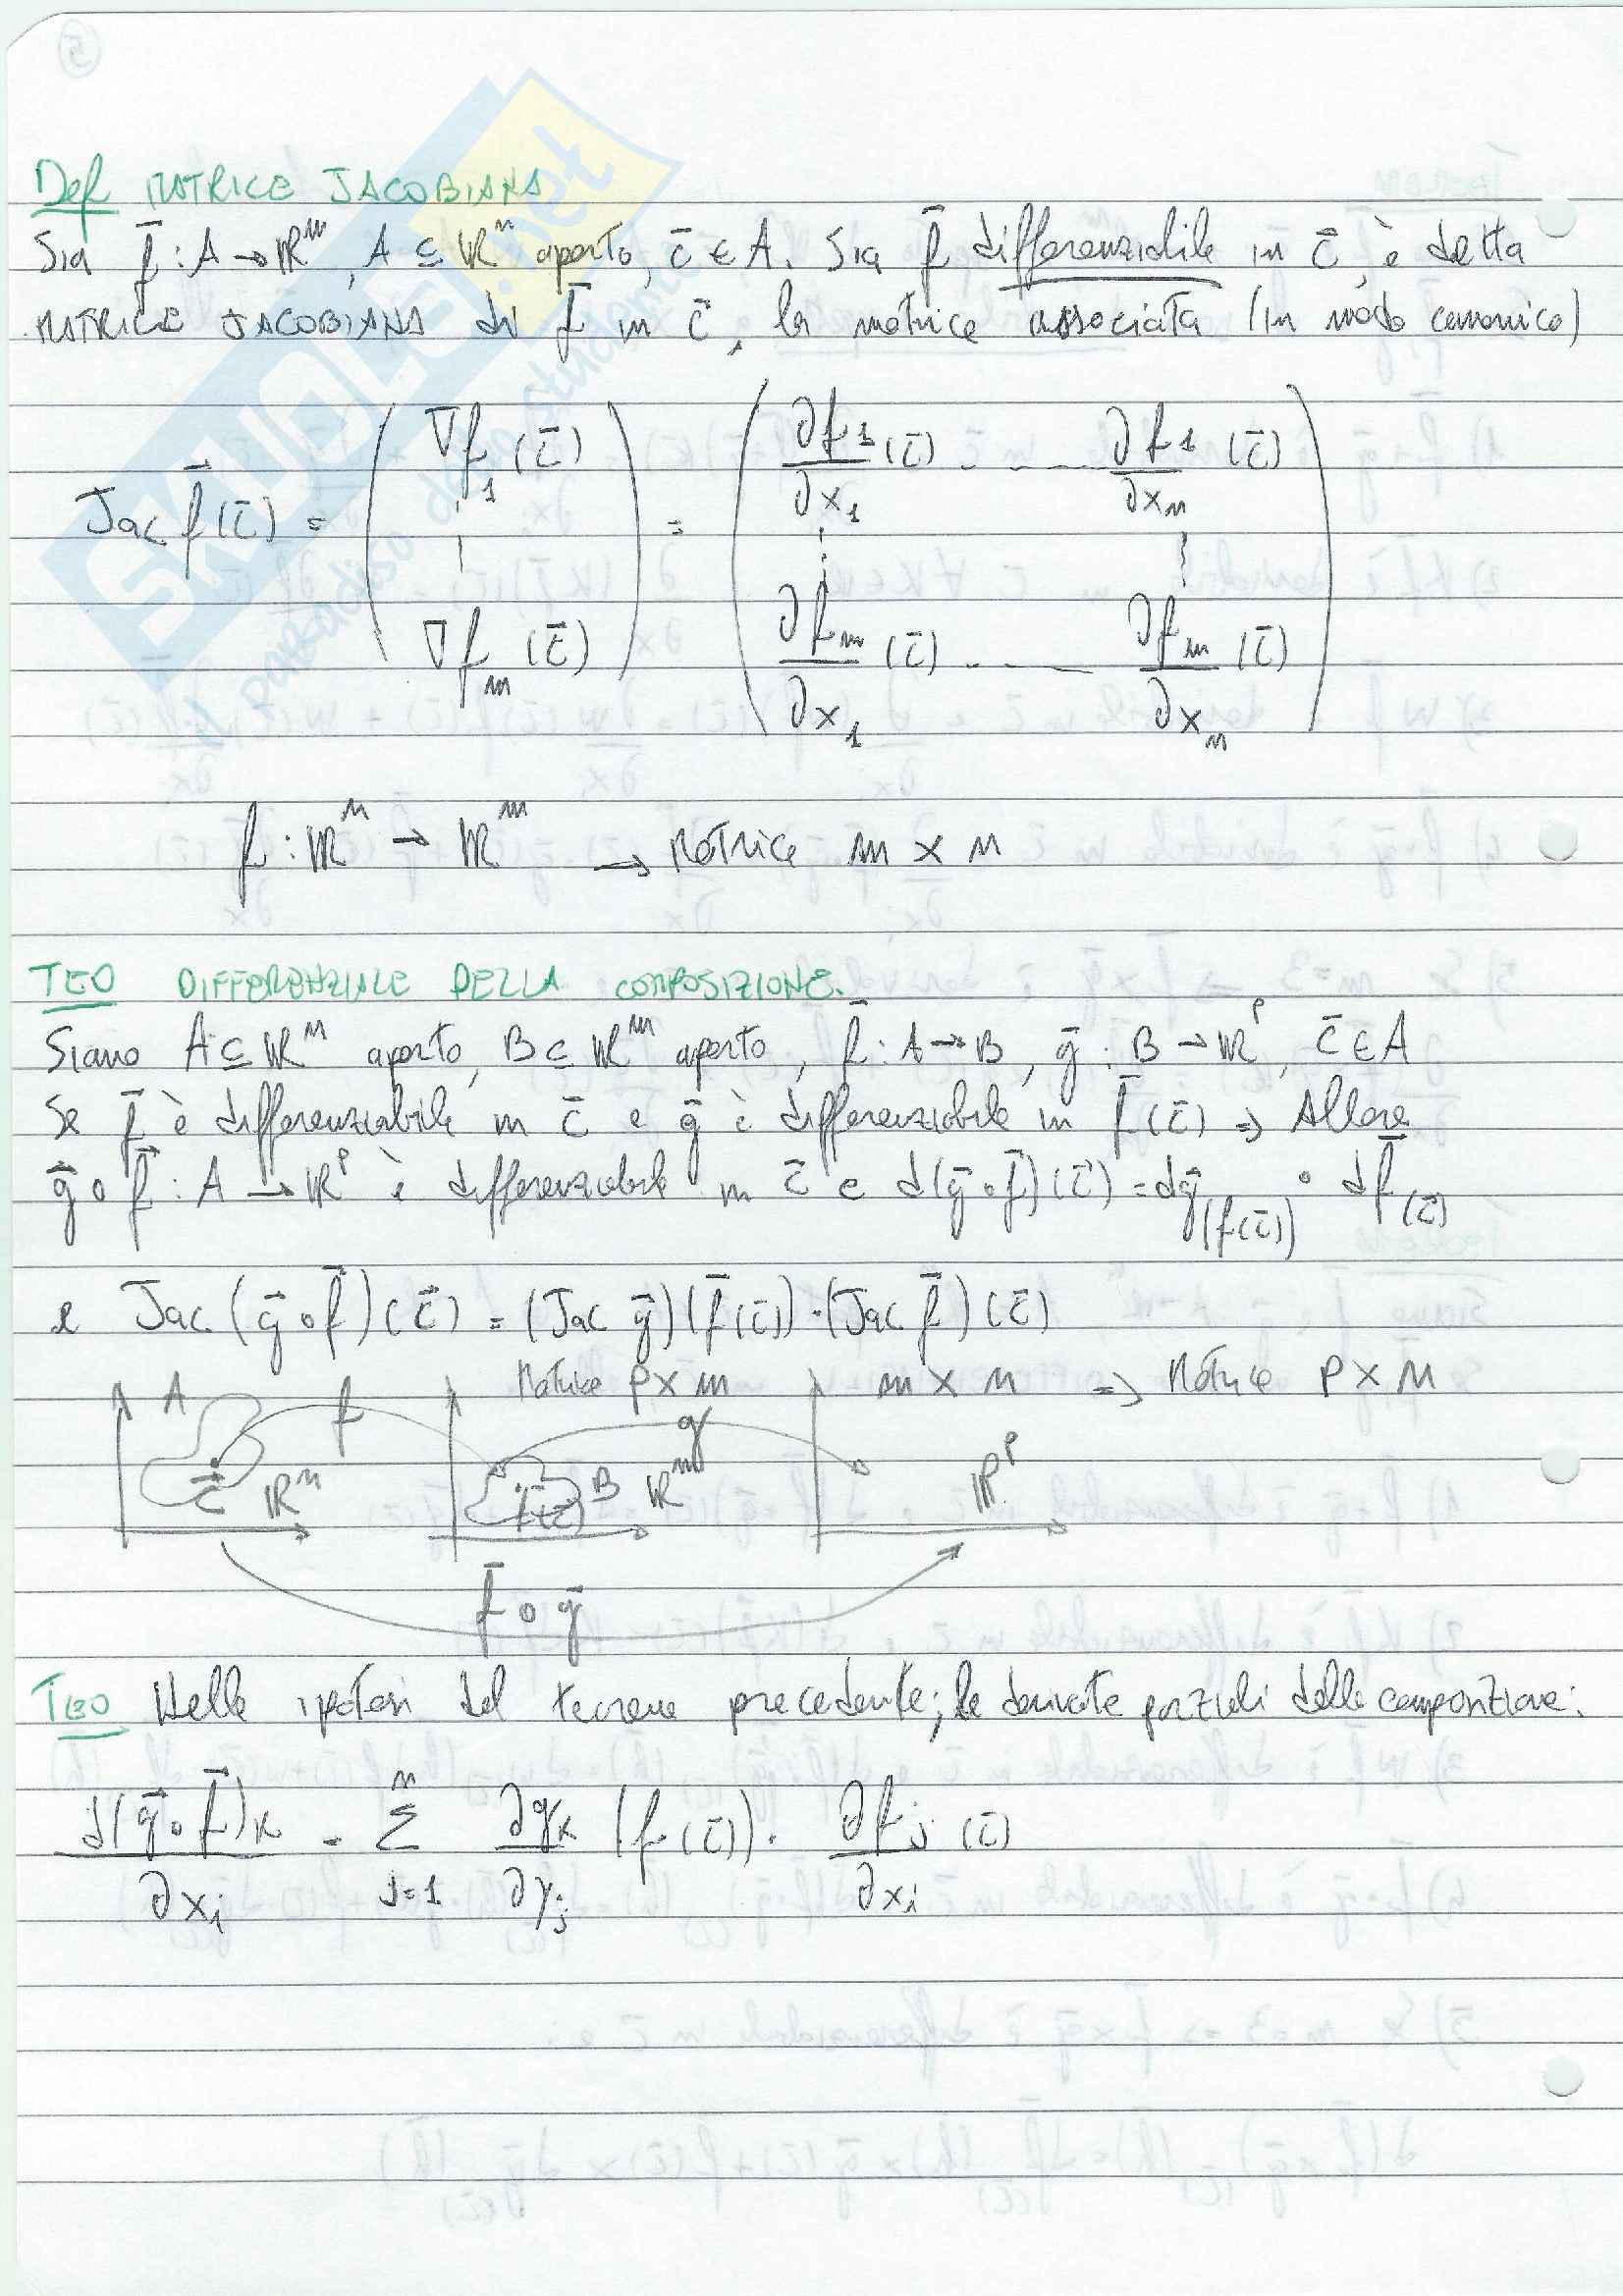 5
Def MATRICE JACOBIANA
Sia f̄ : A → ℝᵐ, A ⊆ ℝⁿ aperto, c̄ ∈ A. Sia f̄ differenziabile in c̄, è detta
MATRICE JACOBIANA di f̄ in c̄, la matrice associata (in modo canonico)
Jac f̄(c̄) = ( ∇f₁(c̄) ⋮ ∇fₘ(c̄) ) = ( ∂f₁/∂x₁ (c̄) ..... ∂f₁/∂xₙ (c̄) ⋮ ⋮ ∂fₘ/∂x₁ (c̄) ..... ∂fₘ/∂xₙ (c̄) )
f : ℝⁿ → ℝᵐ → Matrice m × n
TEO DIFFERENZIALE DELLA COMPOSIZIONE.
Siano A ⊆ ℝⁿ aperto, B ⊆ ℝᵐ aperto, f̄ : A → B, ḡ : B → ℝᵖ, c̄ ∈ A
Se f̄ è differenziabile in c̄ e ḡ è differenziabile in f̄(c̄) ⇒ Allora
ḡ∘f̄ : A → ℝᵖ è differenziabile in c̄ e d(ḡ∘f̄)(c̄) = dḡ(f(c̄)) ∘ df̄(c̄)
e Jac(ḡ∘f̄)(c̄) = (Jac ḡ)(f̄(c̄)) · (Jac f̄)(c̄)
Matrice p × m m × n ⇒ Matrice p × n
A f g
c̄ ℝⁿ f(c̄) B ℝᵐ ℝᵖ
f̄ ∘ ḡ
TEO Nelle ipotesi del teorema precedente; le derivate parziali della composizione:
∂(ḡ∘f̄)ₖ/∂xᵢ = Σⱼ₌₁ⁿ ∂gₖ/∂yⱼ (f(c̄)) · ∂fⱼ/∂xᵢ (c̄)
SKUOLA.net
il paradiso dello studente